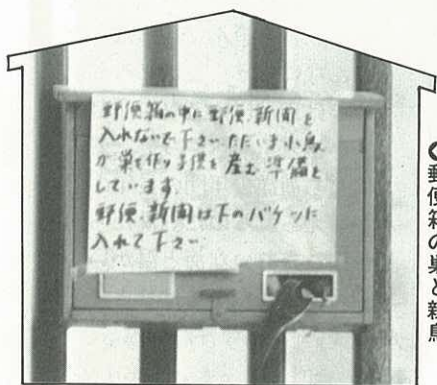 郵便箱の中に郵便、新聞を
入れないで下さい ただいま小鳥
が巣を作り子供を産む準備を
しています。
郵便、新聞は下のバケツに
入れて下さい
郵便箱の巣と親鳥